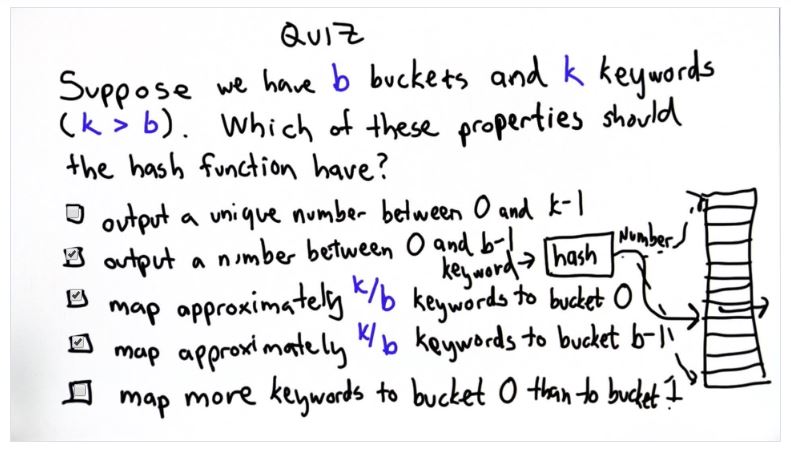 QUIZ
Suppose we have b buckets and k keywords
(k > b). Which of these properties should
the hash function have?
output a unique number between 0 and k-1
output a number between 0 and b-1
keyword → hash Number
map approximately k/b keywords to bucket 0
map approximately k/b keywords to bucket b-1
map more keywords to bucket 0 than to bucket 1